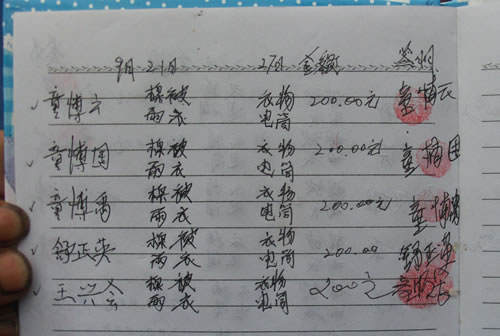 9月21日 27日 金额
童博云 棉被 衣物 200.00元 童博云
雨衣 电筒
童博国 棉被 衣物 200.00元 童博国
雨衣 电筒
童博禹 棉被 衣物 200.00元 童博
雨衣 电筒
舒正英 棉被 衣物 200.00 舒正英
雨衣 电筒
王兴会 棉被 衣物 200元
雨衣 电筒